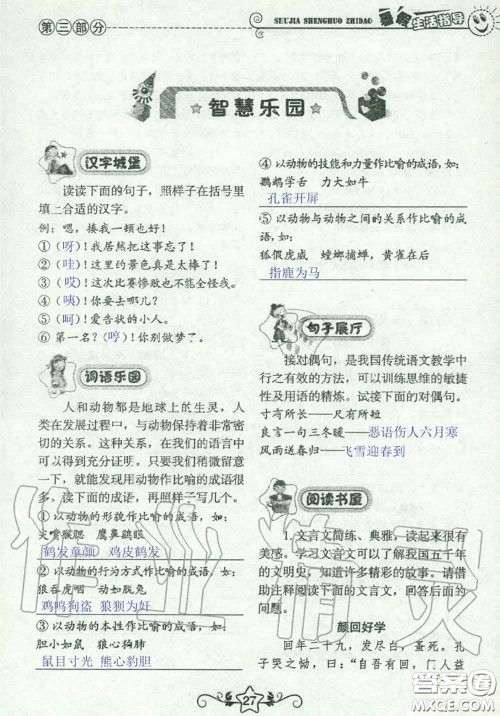 第三部分
SEUJIA SHENGHUO ZHIDAO
暑假生活指导
智慧乐园
汉字城堡
读读下面的句子，照样子在括号里
填上合适的汉字。
例：嗯，揍我一顿也好！
①（呀）！我居然把这事忘了！
②（哇）！这里的景色真是太棒了！
③（哎）！这次比赛惨败也不能全怪我。
④（咦）！你要去哪儿？
⑤（呵）！爱告状的小人。
⑥ 第一名？（哼）！你别做梦了。
词语乐园
人和动物都是地球上的生灵，人类
在发展过程中，与动物保持着非常密
切的关系。这种关系，在我们的语言中
可以得到充分证明。只要我们稍微留意
一下，就能发现用动物作比喻的成语很
多。读下面的成语，再照样子写几个。
① 以动物的形貌作比喻的成语，如：
尖嘴猴腮 鹰鼻鹞眼
鹤发童颜 鸡皮鹤发
② 以动物的行为方式作比喻的成语，如：
狼吞虎咽 动如脱兔
鸡鸣狗盗 狼狈为奸
③ 以动物的本性作比喻的成语，如：
胆小如鼠 狼心狗肺
鼠目寸光 熊心豹胆
④ 以动物的技能和力量作比喻的成语，如：
鹦鹉学舌 力大如牛
孔雀开屏
⑤ 以动物与动物之间的关系作比喻的成
语，如：
狐假虎威 螳螂捕蝉，黄雀在后
指鹿为马
句子展厅
接对偶句，是我国传统语文教学中
行之有效的方法，可以训练思维的敏捷
性及用语的精炼。试接下面的对偶句。
寸有所长——尺有所短
良言一句三冬暖——恶语伤人六月寒
风雨送春归——飞雪迎春到
阅读书屋
1. 文言文简练、典雅，读起来很有
美感。学习文言文可以了解我国五千年
的文明史，知道许多精彩的故事。请借
助注释阅读下面的文言文，回答后面的
问题。
颜回好学
回年二十九，发尽白，蚤死。孔
子哭之恸，曰：“自吾有回，门人益
27
作业精灵
答案圈
MXQE.COM